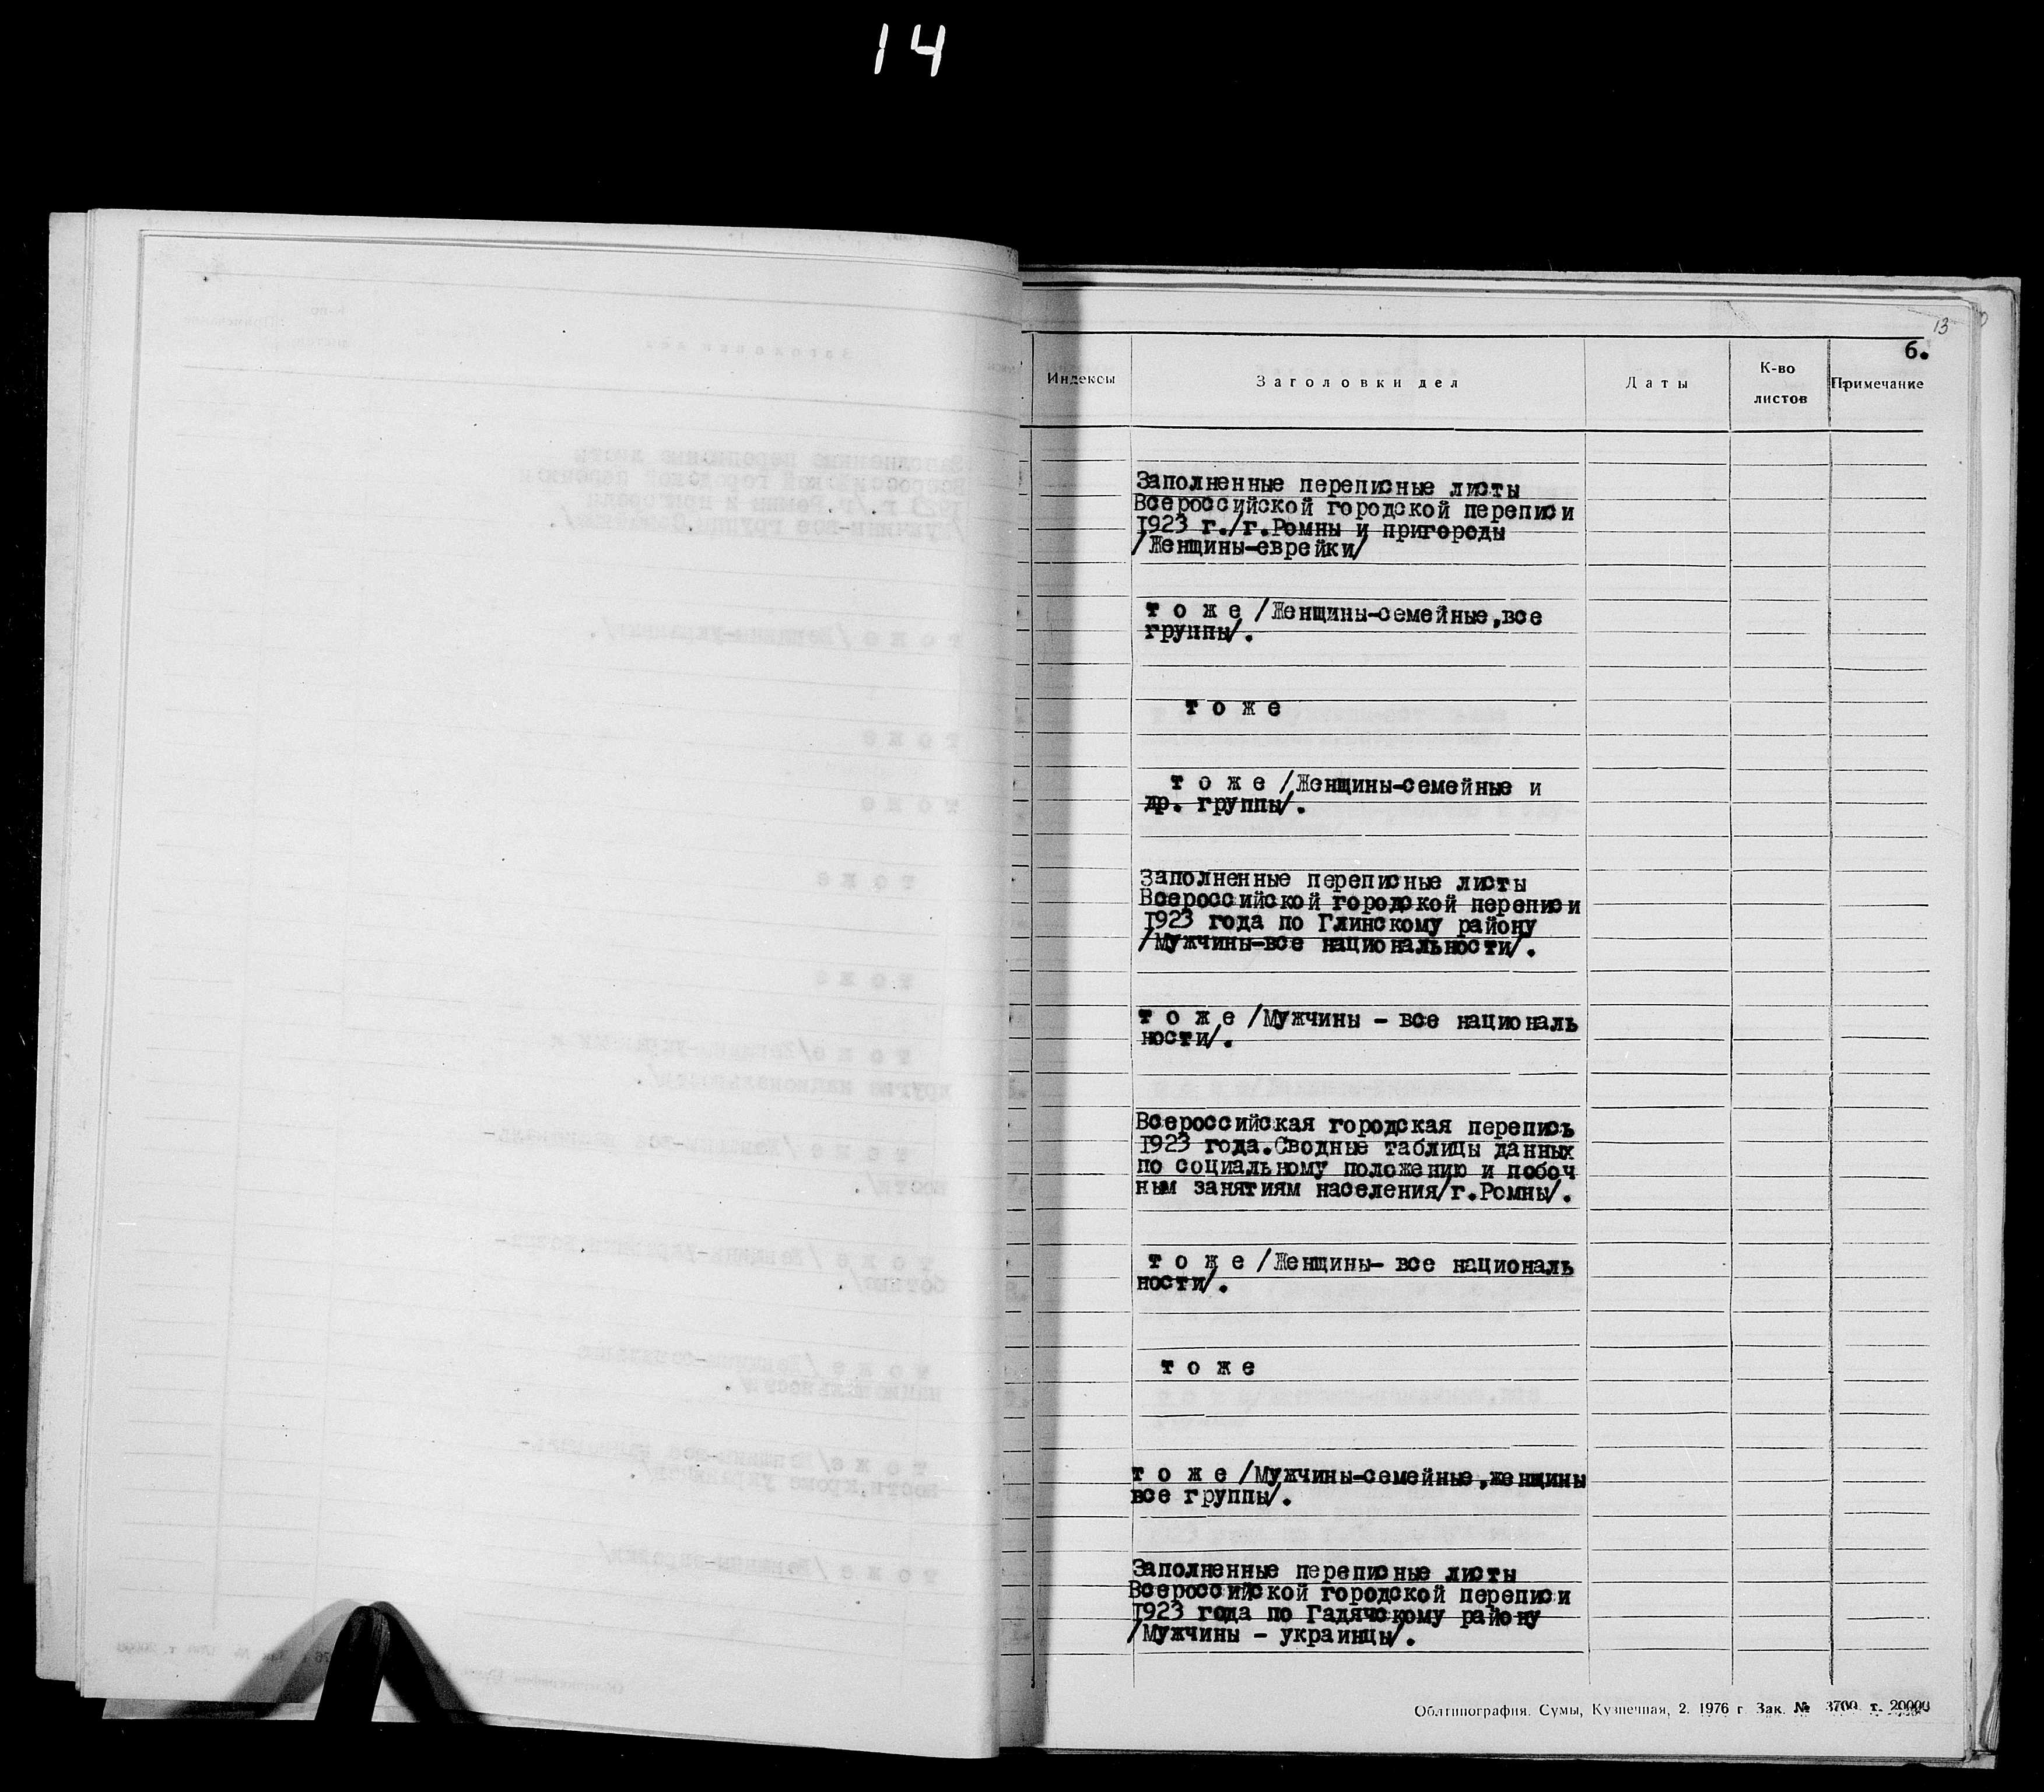 14
13
6.
Индексы
Заголовки дел
Даты
К-во листов
Примечание
Заполненные переписные листы
Всероссийской городской переписи
1923 г./г.Ромны и пригороды
/Женщины-еврейки/
т о ж е /Женщины-семейные,все
группы/.
т о ж е
т о ж е /Женщины-семейные и
др. группы/.
Заполненные переписные листы
Всероссийской городской переписи
1923 года по Глинскому району
/Мужчины-все национальности/.
т о ж е /Мужчины - все националь
ности/.
Всероссийская городская перепись
1923 года.Сводные таблицы данных
по социальному положению и побоч
ным занятиям населения/г.Ромны/.
т о ж е /Женщины- все националь
ности/.
т о ж е
т о ж е /Мужчины-семейные,женщины
все группы/.
Заполненные переписные листы
Всероссийской городской переписи
1923 года по Гадячскому району
/Мужчины - украинцы/.
Облтипография. Сумы, Кузнечная, 2. 1976 г. Зак. № 3700 т. 20000